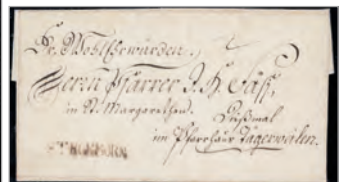 Sr. Wohlehrwürden
Herrn Pfarrer J. H. Fäsi,
in St. Margrethen. Dißmal
im Pfarrhaus Tägerweilen.